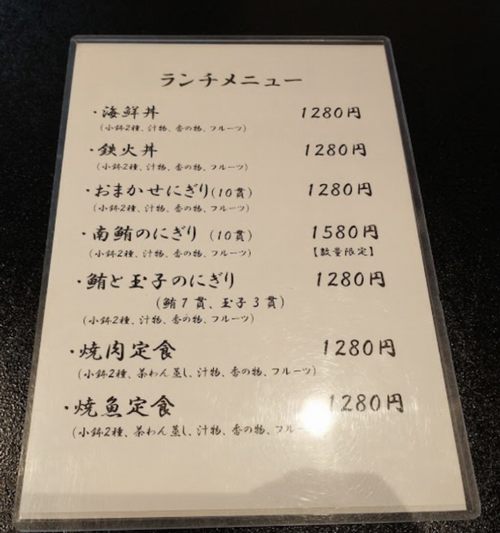 ランチメニュー
・海鮮丼 1280円
(小鉢2種、汁物、香の物、フルーツ)
・鉄火丼 1280円
(小鉢2種、汁物、香の物、フルーツ)
・おまかせにぎり(10貫) 1280円
(小鉢2種、汁物、香の物、フルーツ)
・南鮪のにぎり (10貫) 1580円
(小鉢2種、汁物、香の物、フルーツ) 【数量限定】
・鮪と玉子のにぎり 1280円
(鮪7貫、玉子3貫)
(小鉢2種、汁物、香の物、フルーツ)
・焼肉定食 1280円
(小鉢2種、茶わん蒸し、汁物、香の物、フルーツ)
・焼魚定食 1280円
(小鉢2種、茶わん蒸し、汁物、香の物、フルー